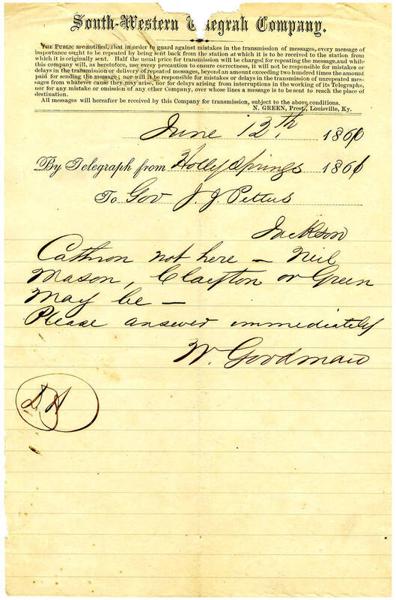 South-Western Telegrah Company.
THE PUBLIC are notified, that in order to guard against mistakes in the transmission of messages, every message of
importance ought to be repeated by being sent back from the station at which it is to be received to the station from
which it is originally sent. Half the usual price for transmission will be charged for repeating the message, and while
this company will, as heretofore, use every precaution to ensure correctness, it will not be responsible for mistakes or
delays in the transmission or delivery of repeated messages, beyond an amount exceeding two hundred times the amount
paid for sending the message; nor will it be responsible for mistakes or delays in the transmission of unrepeated mes-
sages from whatever cause they may arise, nor for delays arising from interruptions in the working of its Telegraphs,
nor for any mistake or omission of any other Company, over whose lines a message is to be sent to reach the place of
destination.
All messages will hereafter be received by this Company for transmission, subject to the above conditions.
N. GREEN, Prest, Louisville, Ky.
June 12th 1860
By Telegraph from Holly Springs 1861
To Gov J. J. Pettus
Jackson
Cathron not here – Neil
Mason, Clayton or Green
May be –
Please answer immediately
W. Goodman